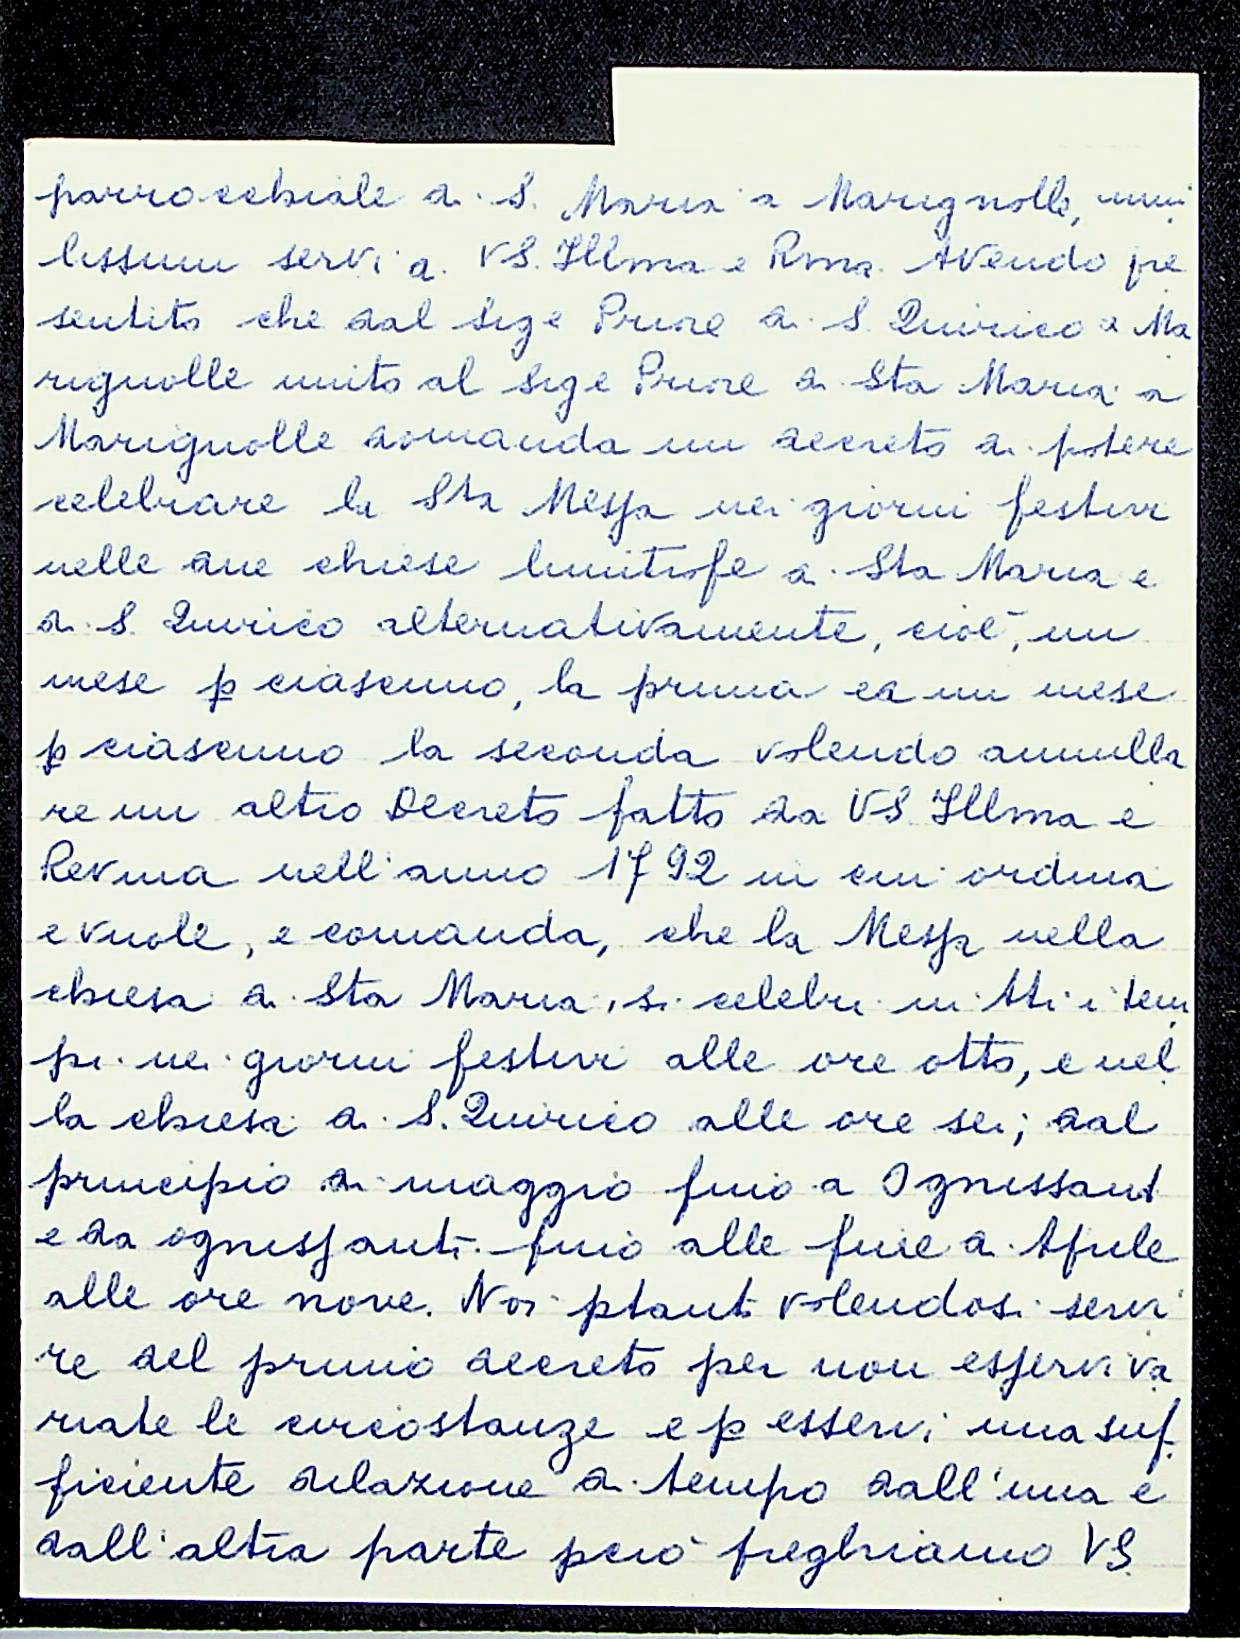 parrocchiale di S. Maria a Marignolle, umi
lissimi servi di VS. Illma e Rma. Avendo pre
sentito che dal Sige Priore di S. Quirico a Ma
rignolle unito al Sige Priore di Sta Maria a
Marignolle domanda un decreto di potere
celebrare la Sta Messa nei giorni festivi
nelle due chiese limitrofe di Sta Maria e
di S. Quirico alternativamente, cioè, un
mese p ciascuno, la prima ed un mese
p ciascuno la seconda volendo annulla
re un altro Decreto fatto da VS. Illma e
Revma nell'anno 1792 in cui ordina
e vuole, e comanda, che la Messa nella
chiesa di Sta Maria, si celebri in tti i tem
pi nei giorni festivi alle ore otto, e nel
la chiesa di S. Quirico alle ore sei; dal
principio di maggio fino a Ognissant
e da ognissanti fino alle fine di Aprile
alle ore nove. Noi ptanti volendosi servi
re del primio decreto per non esservi va
riate le circostanze e p esservi una suf
ficiente dilazione di tempo dall'una e
dall'altra parte però preghiamo VS.